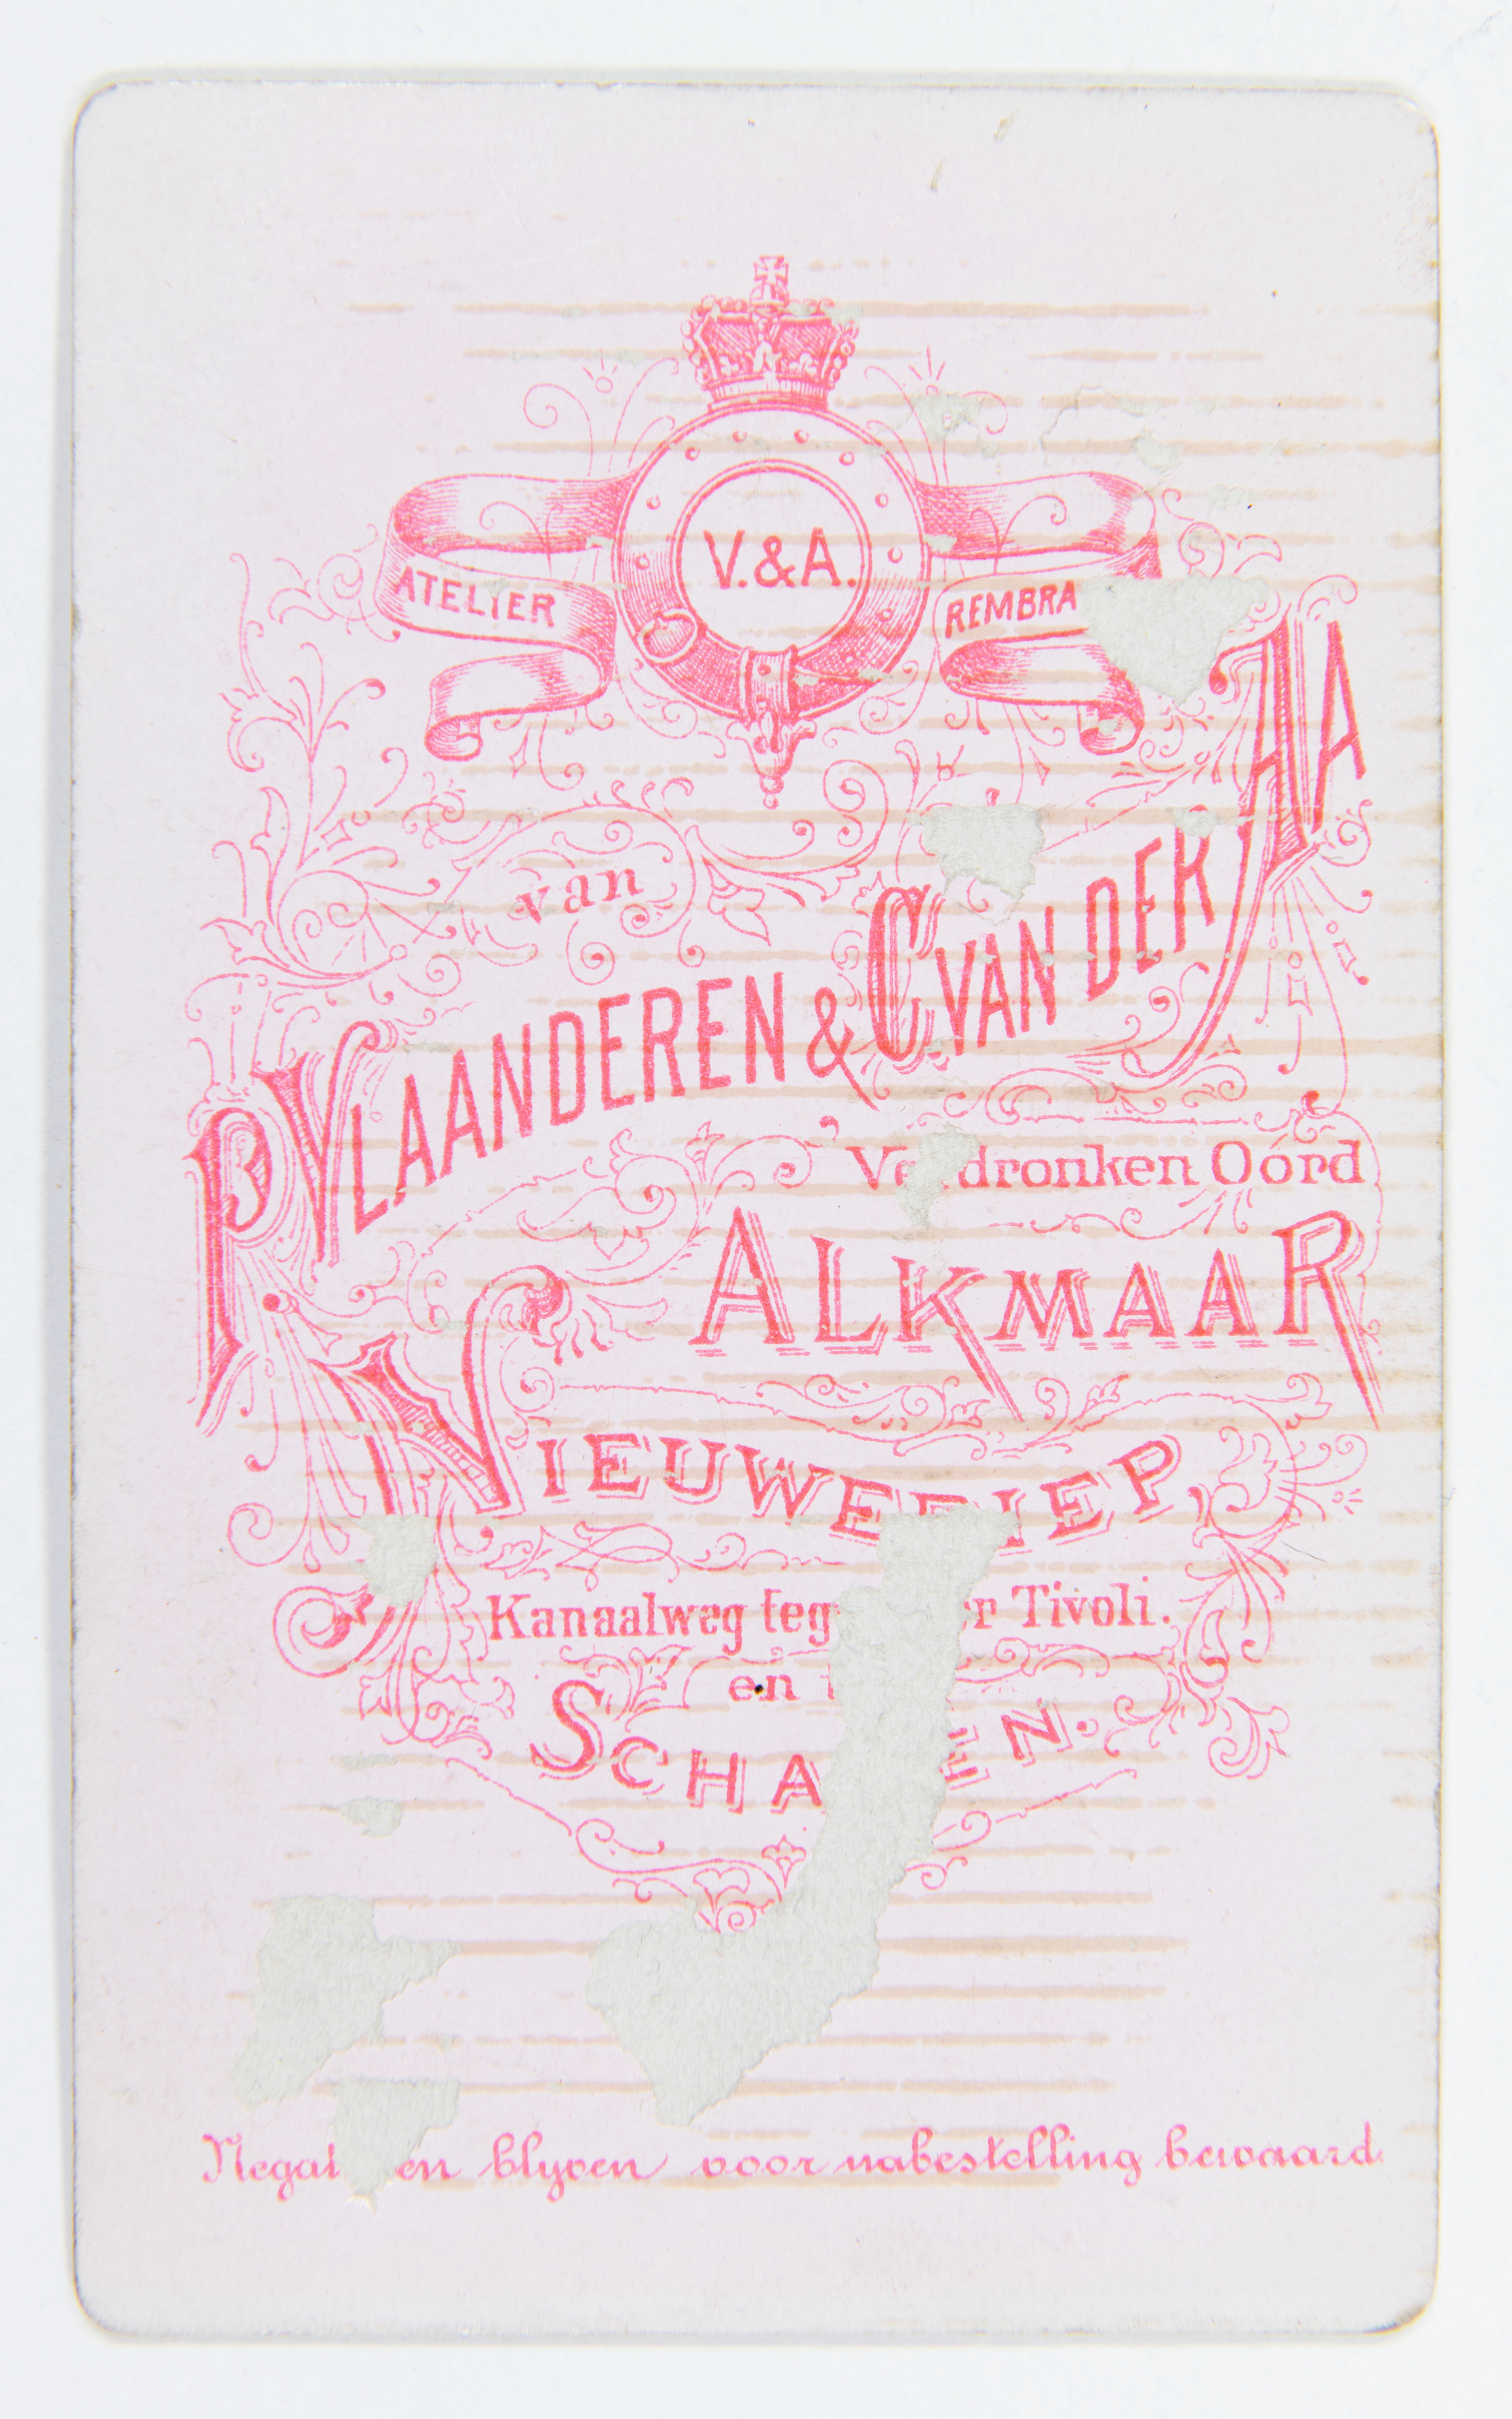 V.&A.
ATELIER REMBRA
van
P. VLAANDEREN & C. VAN DER AA
dronken Oórd
ALKMAAR
NIEUWEDIEP
Kanaalweg Tivoli.
en
Negat en blyven voor nabestelling bewaard.